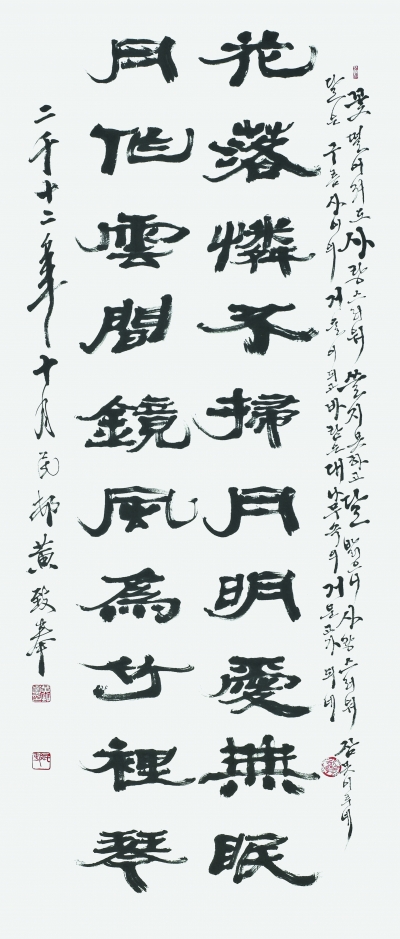 꽃 떨어져도 사랑스러워 쓸지 못하고 달 밝으니 사랑스러워 잠 못 이루네
달은 구름 사이의 거울이 되고 바람은 대나무 속의 거문고가 되네
花落憐不掃月明愛無眠
月作雲間鏡風為竹裡琴
二千十二年十月 黃致奉